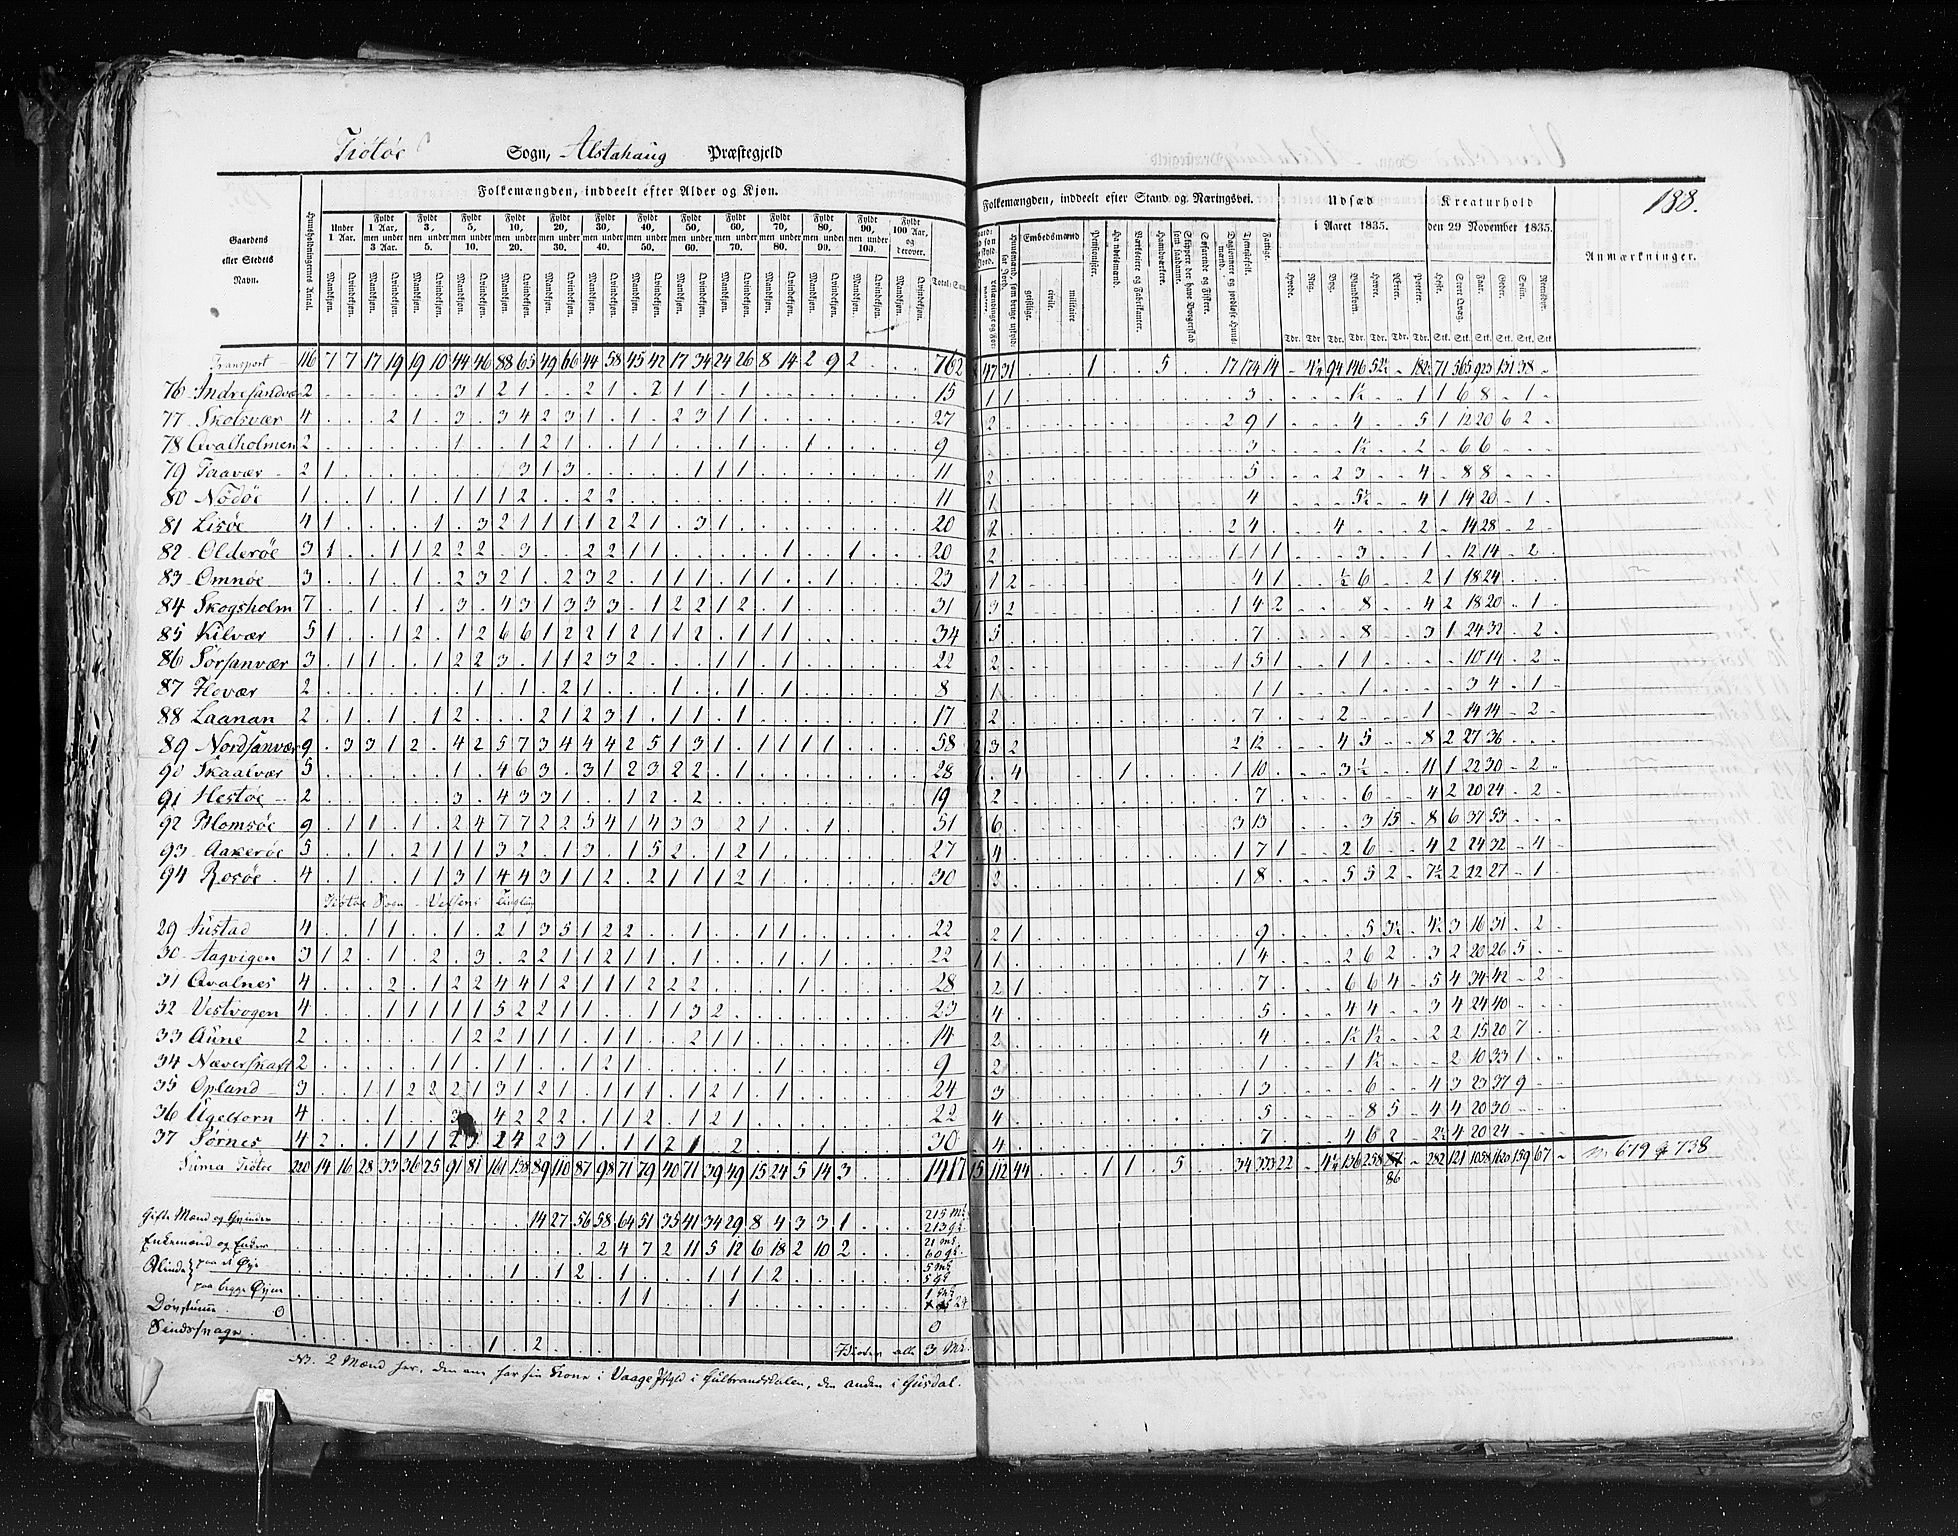 Tiötöe Sogn, Alstahaug Præstegjeld
188.
Folkemængden, inddeelt efter Alder og Kjøn.
Folkemængden, inddeelt efter Stand og Næringsvei.
Udsæd i Aaret 1835.
Kreaturhold den 29 November 1835.
Anmærkninger.
Gaardens eller Stedets Navn.
Huusholdningernes Antal.
Under 1 Aar.
Fyldt 1 Aar, men under 3 Aar.
Fyldt 3, men under 5.
Fyldt 5, men under 10.
Fyldt 10, men under 20.
Fyldt 20, men under 30.
Fyldt 30, men under 40.
Fyldt 40, men under 50.
Fyldt 50, men under 60.
Fyldt 60, men under 70.
Fyldt 70, men under 80.
Fyldt 80, men under 90.
Fyldt 90, men under 100.
Fyldt 100 Aar, og derover.
Mandkjøn. Qvindekjøn.
Embedsmænd geistlige. civile. militaire
Pensionister.
Handelsmænd.
Værkeiere og Fabrikanter.
Haandværkere.
Tjenestefolk.
Fattige.
Hvede. Rug. Byg. Blandkorn. Havre. Erter. Poteter.
Heste. Stort Qvæg. Faar. Geder. Sviin. Rensdyr.
Transport 116 7 7 17 19 19 10 44 46 88 65 49 66 44 58 45 42 17 34 24 26 8 14 2 9 2 762 47 31 1 5 17 174 14 4½ 94 146 52½ 182½ 71 565 923 131 38
76 Indresandvær 2 3 1 2 1 2 1 2 1 1 1 15 1 1 3 1½ 1 1 6 8 1
77 Skotsvær 4 2 1 3 3 4 2 3 1 1 2 3 1 1 27 2 2 9 1 4 5 1 12 20 6 2
78 Qvalholmen 2 1 1 2 1 1 1 1 1 9 3 1½ 2 6 6
79 Taavær 2 1 3 1 3 1 1 1 11 2 5 2 3 4 8 8
80 Nödöe 1 1 1 1 1 1 2 2 2 11 1 4 5½ 4 1 14 20 1
81 Lisöe 4 1 1 3 2 1 1 1 1 2 2 1 3 1 20 2 2 4 4 2 14 28 2
82 Olderöe 3 1 1 1 2 2 2 3 2 2 1 1 1 1 20 2 1 1 1 3 1 12 14 2
83 Omnöe 3 1 1 2 3 2 1 2 3 2 1 1 1 1 1 1 23 1 2 4 1 ½ 6 2 1 18 24
84 Skogsholm 7 1 1 3 4 3 1 3 3 3 1 2 2 1 2 1 31 1 3 2 1 4 2 8 4 2 18 20 1
85 Kilvær 5 1 1 2 1 2 6 6 1 2 2 1 2 1 1 2 1 1 1 34 5 7 8 3 1 24 32 2
86 Sörsanvær 3 1 1 1 2 2 3 1 1 2 3 2 1 1 1 22 2 1 5 1 1 1 10 14 2
87 Hovær 2 1 1 2 1 1 1 1 8 1 1 1 1 3 4 1
88 Laanan 2 1 1 1 2 2 1 2 3 1 1 1 1 17 2 7 2 1 14 14 2
89 Nordsanvær 9 3 3 1 2 4 2 5 7 3 4 4 4 2 5 1 3 1 1 1 1 1 58 2 3 2 2 12 4 5 8 2 27 36
90 Skaalvær 5 1 4 6 3 3 1 2 3 2 2 1 28 1 4 1 1 10 3 ½ 11 1 22 30 2
91 Hestöe 2 3 4 3 3 1 1 2 2 19 2 7 6 4 2 20 24 2
92 Blomsöe 9 1 1 1 2 4 7 7 2 2 5 4 1 4 3 3 2 1 1 51 6 3 13 3 15 8 6 37 53
93 Aakeröe 5 1 2 1 1 1 3 2 1 3 1 5 2 1 2 1 27 4 1 7 1 2 6 4 2 24 32 4
94 Rosöe 4 1 1 1 3 1 4 4 3 1 1 2 2 1 1 1 2 1 30 2 1 8 5 5 2 7½ 2 22 27 1
Tiötöe Sogn
29 Justad 4 1 1 1 2 1 3 5 1 2 2 1 1 1 22 2 1 9 5 3½ 4½ 3 16 31 2
30 Aagvigen 3 1 2 1 2 3 2 2 1 1 2 1 1 1 1 1 22 1 1 1 4 2 6 2 3 2 20 26 5
31 Qvalnes 4 2 1 2 2 4 4 1 2 1 1 1 2 2 2 1 28 2 1 7 6 6 4 5 4 34 42 2
32 Vestvogen 4 1 1 1 1 1 5 2 2 1 1 1 1 3 2 23 4 5 4 4 3 4 24 40
33 Aune 2 1 2 2 1 1 1 1 2 1 1 14 2 4 1½ 1½ 2 2 15 20 7
34 Næverskaft 2 1 1 1 1 1 2 1 1 9 2 1 1 1½ 2 10 33 1
35 Opland 3 1 1 2 2 2 1 3 1 2 1 1 1 1 1 2 1 1 24 3 1 3 6 4 3 23 37 9
36 Ugeltorn 4 1 3 4 2 2 2 1 1 2 1 2 1 22 4 5 8 5 4 4 20 30
37 Sörnes 4 2 1 1 1 2 3 2 4 2 3 1 1 1 2 1 2 1 30 4 7 4 6 2 2½ 4 20 24
Suma Tiötöe 220 14 16 28 33 36 25 91 81 161 138 89 110 87 98 71 79 40 71 39 49 15 24 5 14 3 1417 15 112 44 1 1 5 34 333 22 4½ 136 258 87 86 282 121 1058 1620 159 67 m 679 q 738
Gifte Mænd og Qvinder 14 27 56 58 64 51 35 41 34 29 8 4 3 3 1 215 m: 213 q:
Enkemænd og Enker 2 4 7 2 11 5 12 6 18 2 10 2 21 m: 60 q:
Blinde paa et Øye 1 1 2 1 1 1 1 2 5 m: 5 q:
paa begge Øyne 1 1 1
Dövstumme 0 0
Sindssvage 1 2 3 M:
NB. 2 Mænd her, den ene har sin Kone i Vaage Pgjld i Gulbrandsdalen, den anden i Gusdal.